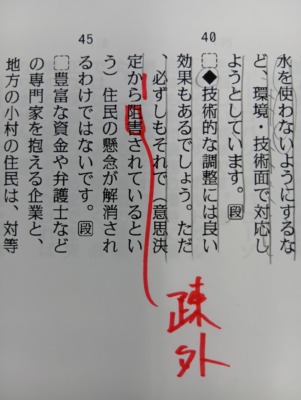 40
45
水を使わないようにするな
ど、環境・技術面で対応し
ようとしています。段
◆技術的な調整には良い
効果もあるでしょう。ただ
、必ずしもそれで（意思決
定から阻害されているとい
う）住民の懸念が解消され
るわけではないです。段
豊富な資金や弁護士など
の専門家を抱える企業と、
地方の小村の住民は、対等
疎外